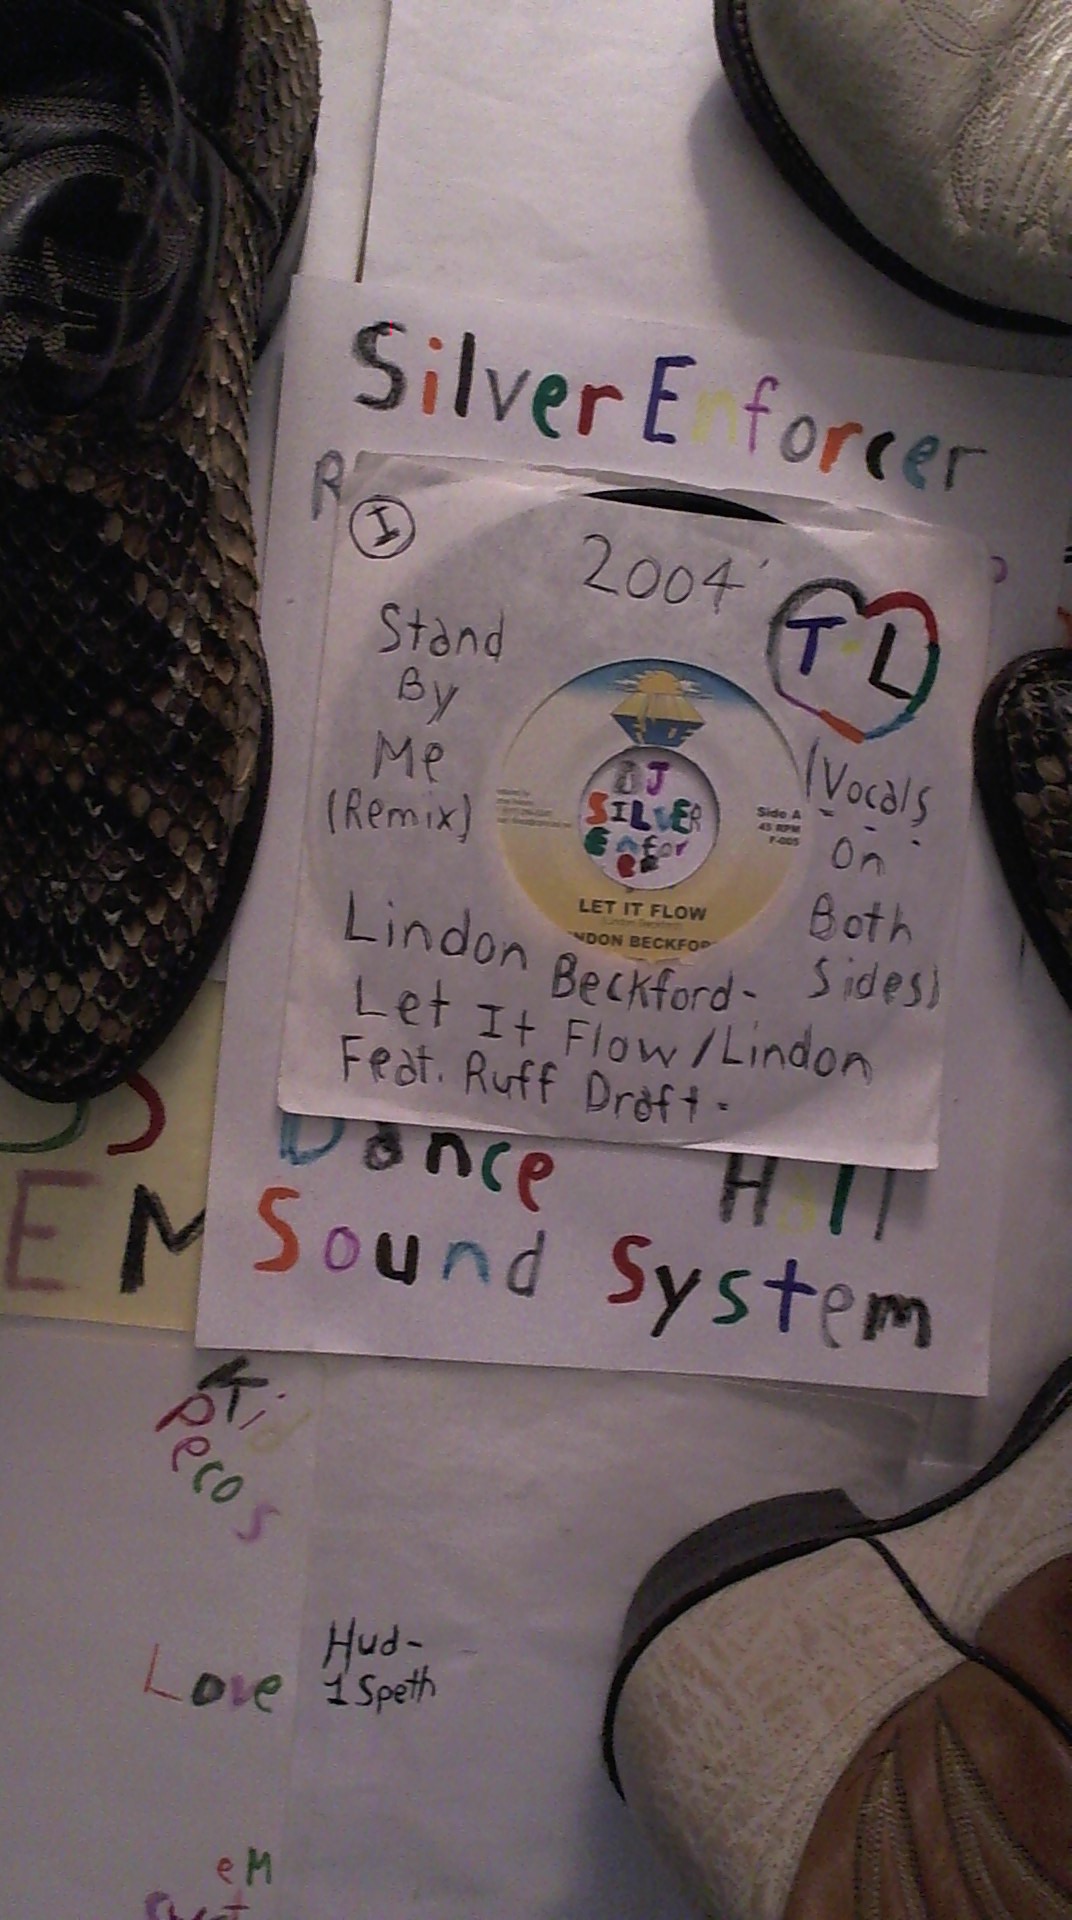 Silver Enforcer
R
I
2004'
T-L
Stand
By
Me
(Remix)
DJ
SILVER
Enfor
cer
Side A
45 RPM
F-005
LET IT FLOW
(Lindon Beckford)
NDON BECKFOR
(Vocals
On
Both
Sides)
Lindon Beckford-
Let It Flow/Lindon
Feat. Ruff Draft-
Dance Hall
Sound System
SS
EM
Love
Hud-
1 Speth
eM